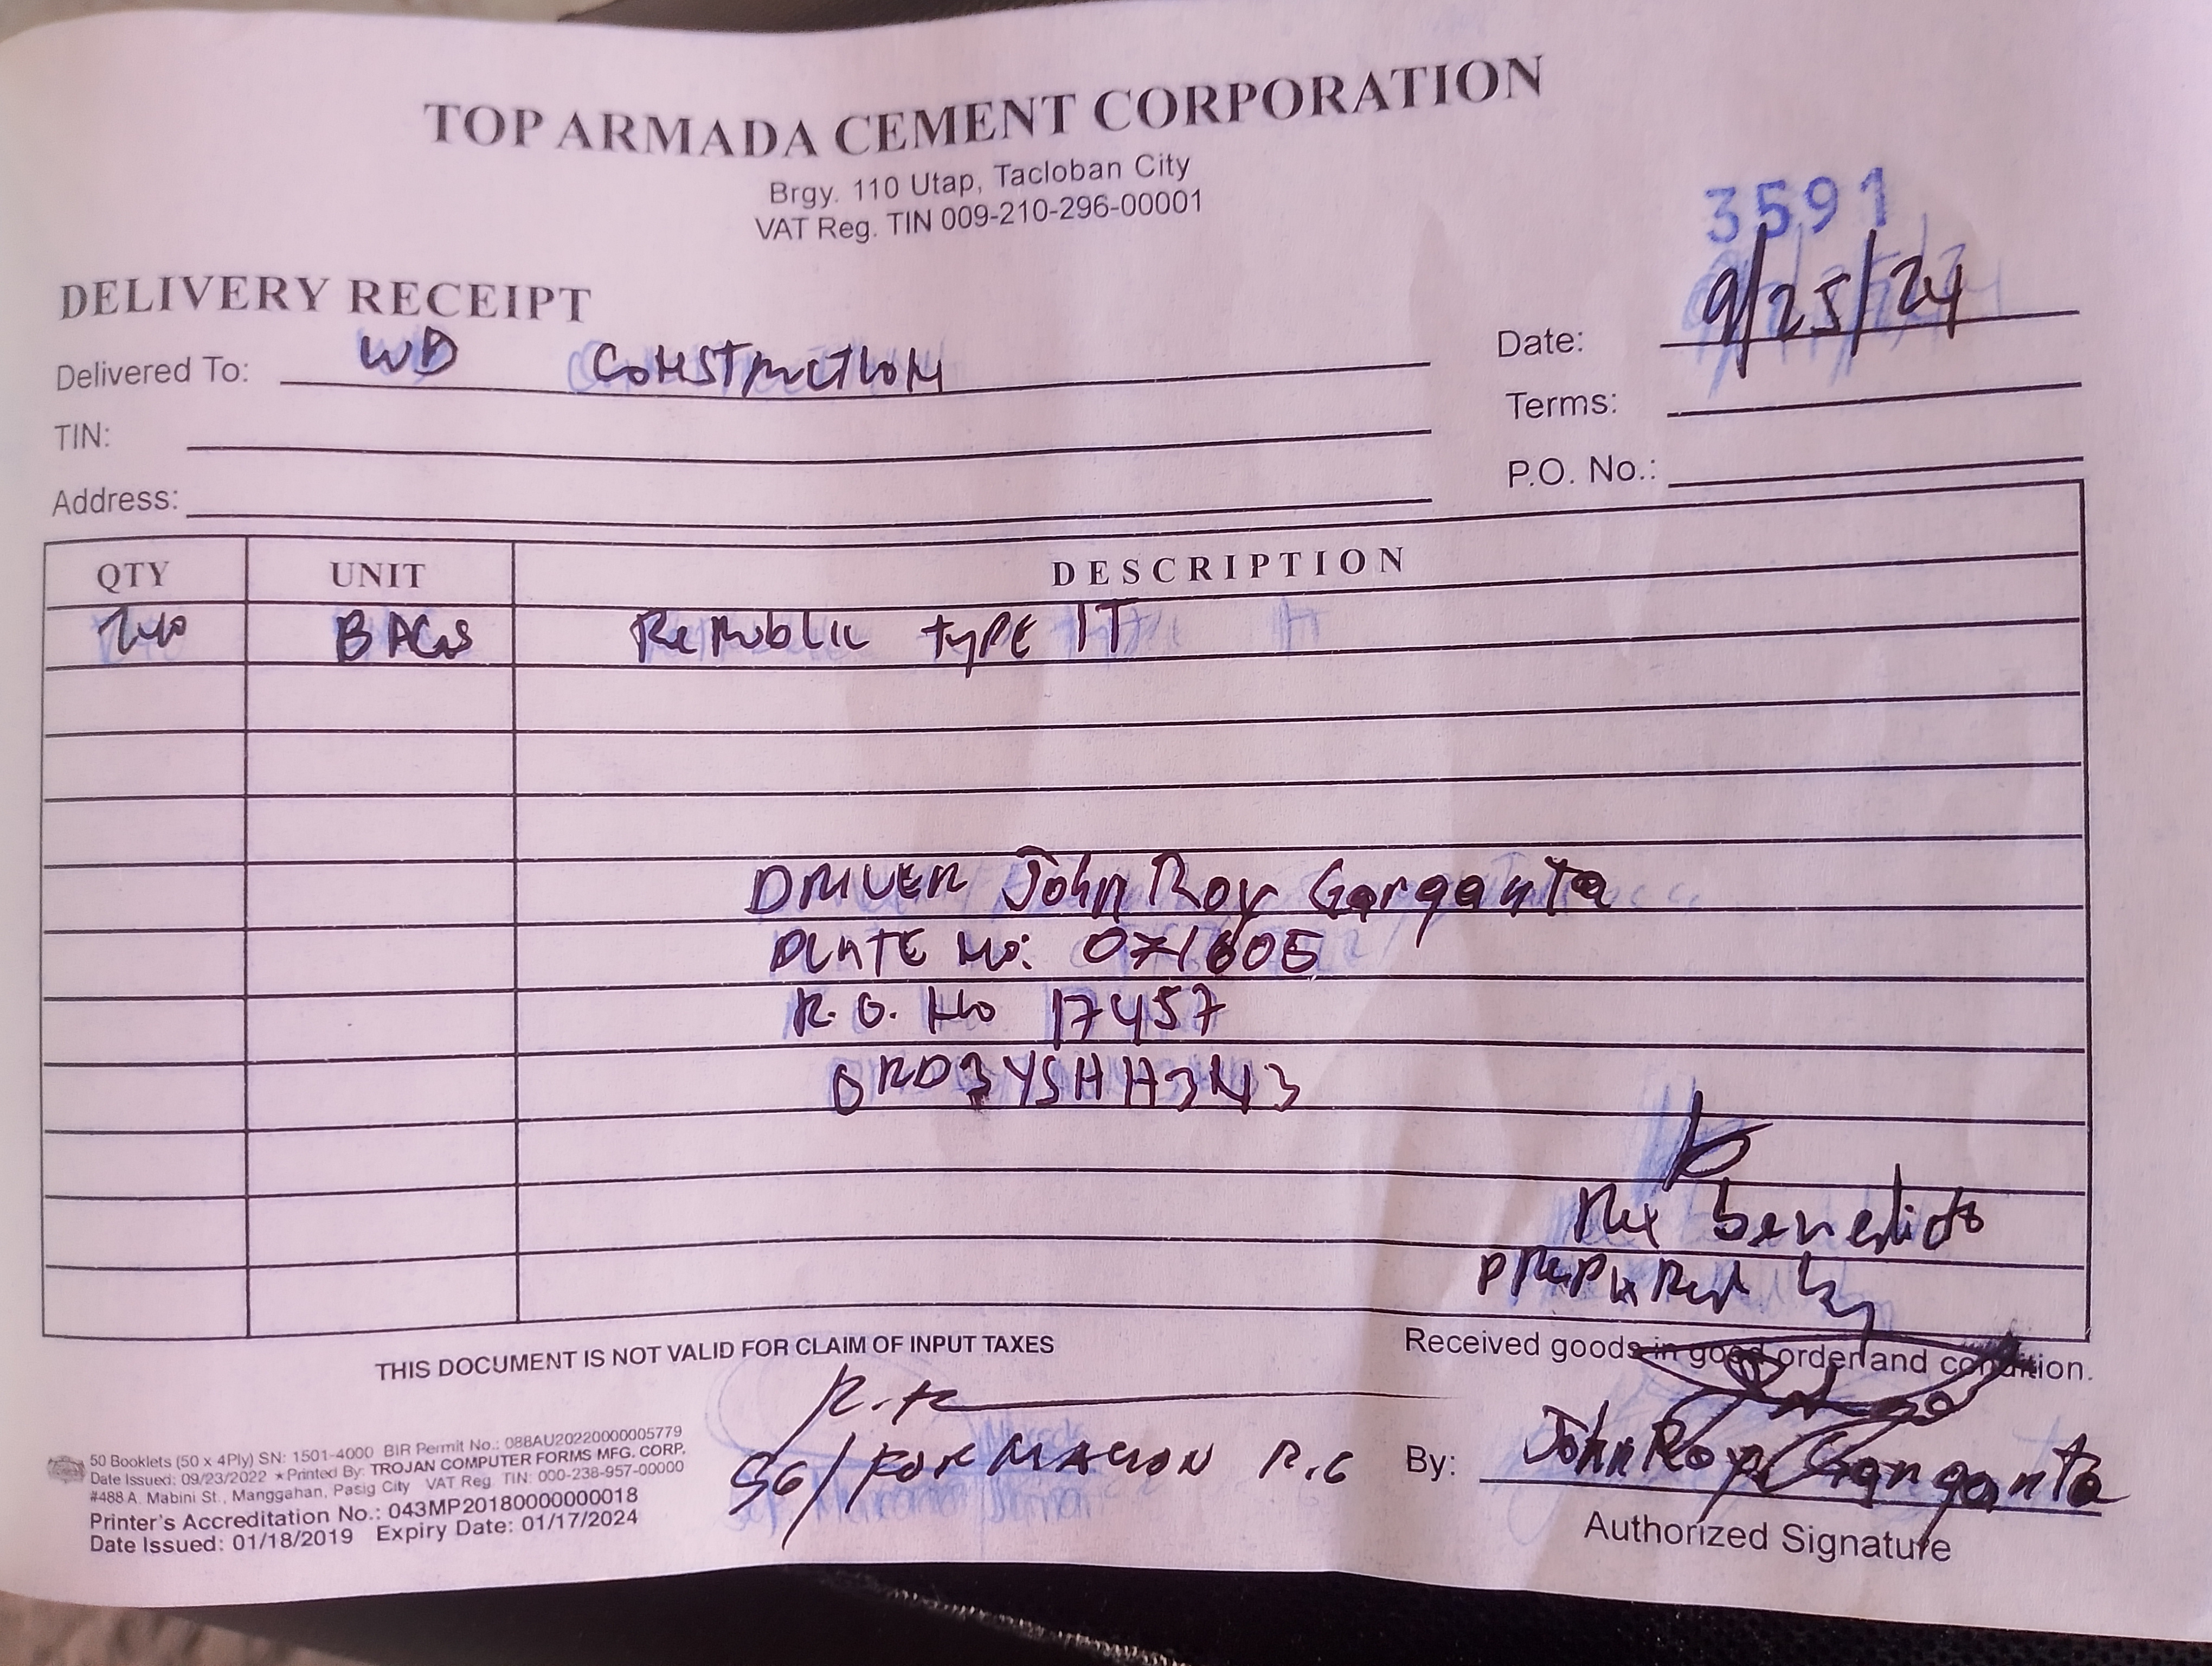 TOP ARMADA CEMENT CORPORATION
Brgy. 110 Utap, Tacloban City
VAT Reg. TIN 009-210-296-00001
3591
DELIVERY RECEIPT
Date: 9/25/24
Delivered To: WD Construction
Terms:
TIN:
P.O. No.:
Address:
QTY UNIT DESCRIPTION
240 BAGS Republic type IT
DRIVER John Roy Garganta
PLATE No: 071605
R.O. No 17457
ORD3YSHH3N3
Rex benedicto
PREPARED by
THIS DOCUMENT IS NOT VALID FOR CLAIM OF INPUT TAXES
Received goods in good order and condition.
SG/FORMACION R.G
By: John Roy Garganta
Authorized Signature
50 Booklets (50 x 4Ply) SN: 1501-4000 BIR Permit No.: 088AU20220000005779
Date Issued: 09/23/2022 ★ Printed By: TROJAN COMPUTER FORMS MFG. CORP.
#488 A. Mabini St., Manggahan, Pasig City VAT Reg. TIN: 000-238-957-00000
Printer's Accreditation No.: 043MP20180000000018
Date Issued: 01/18/2019 Expiry Date: 01/17/2024